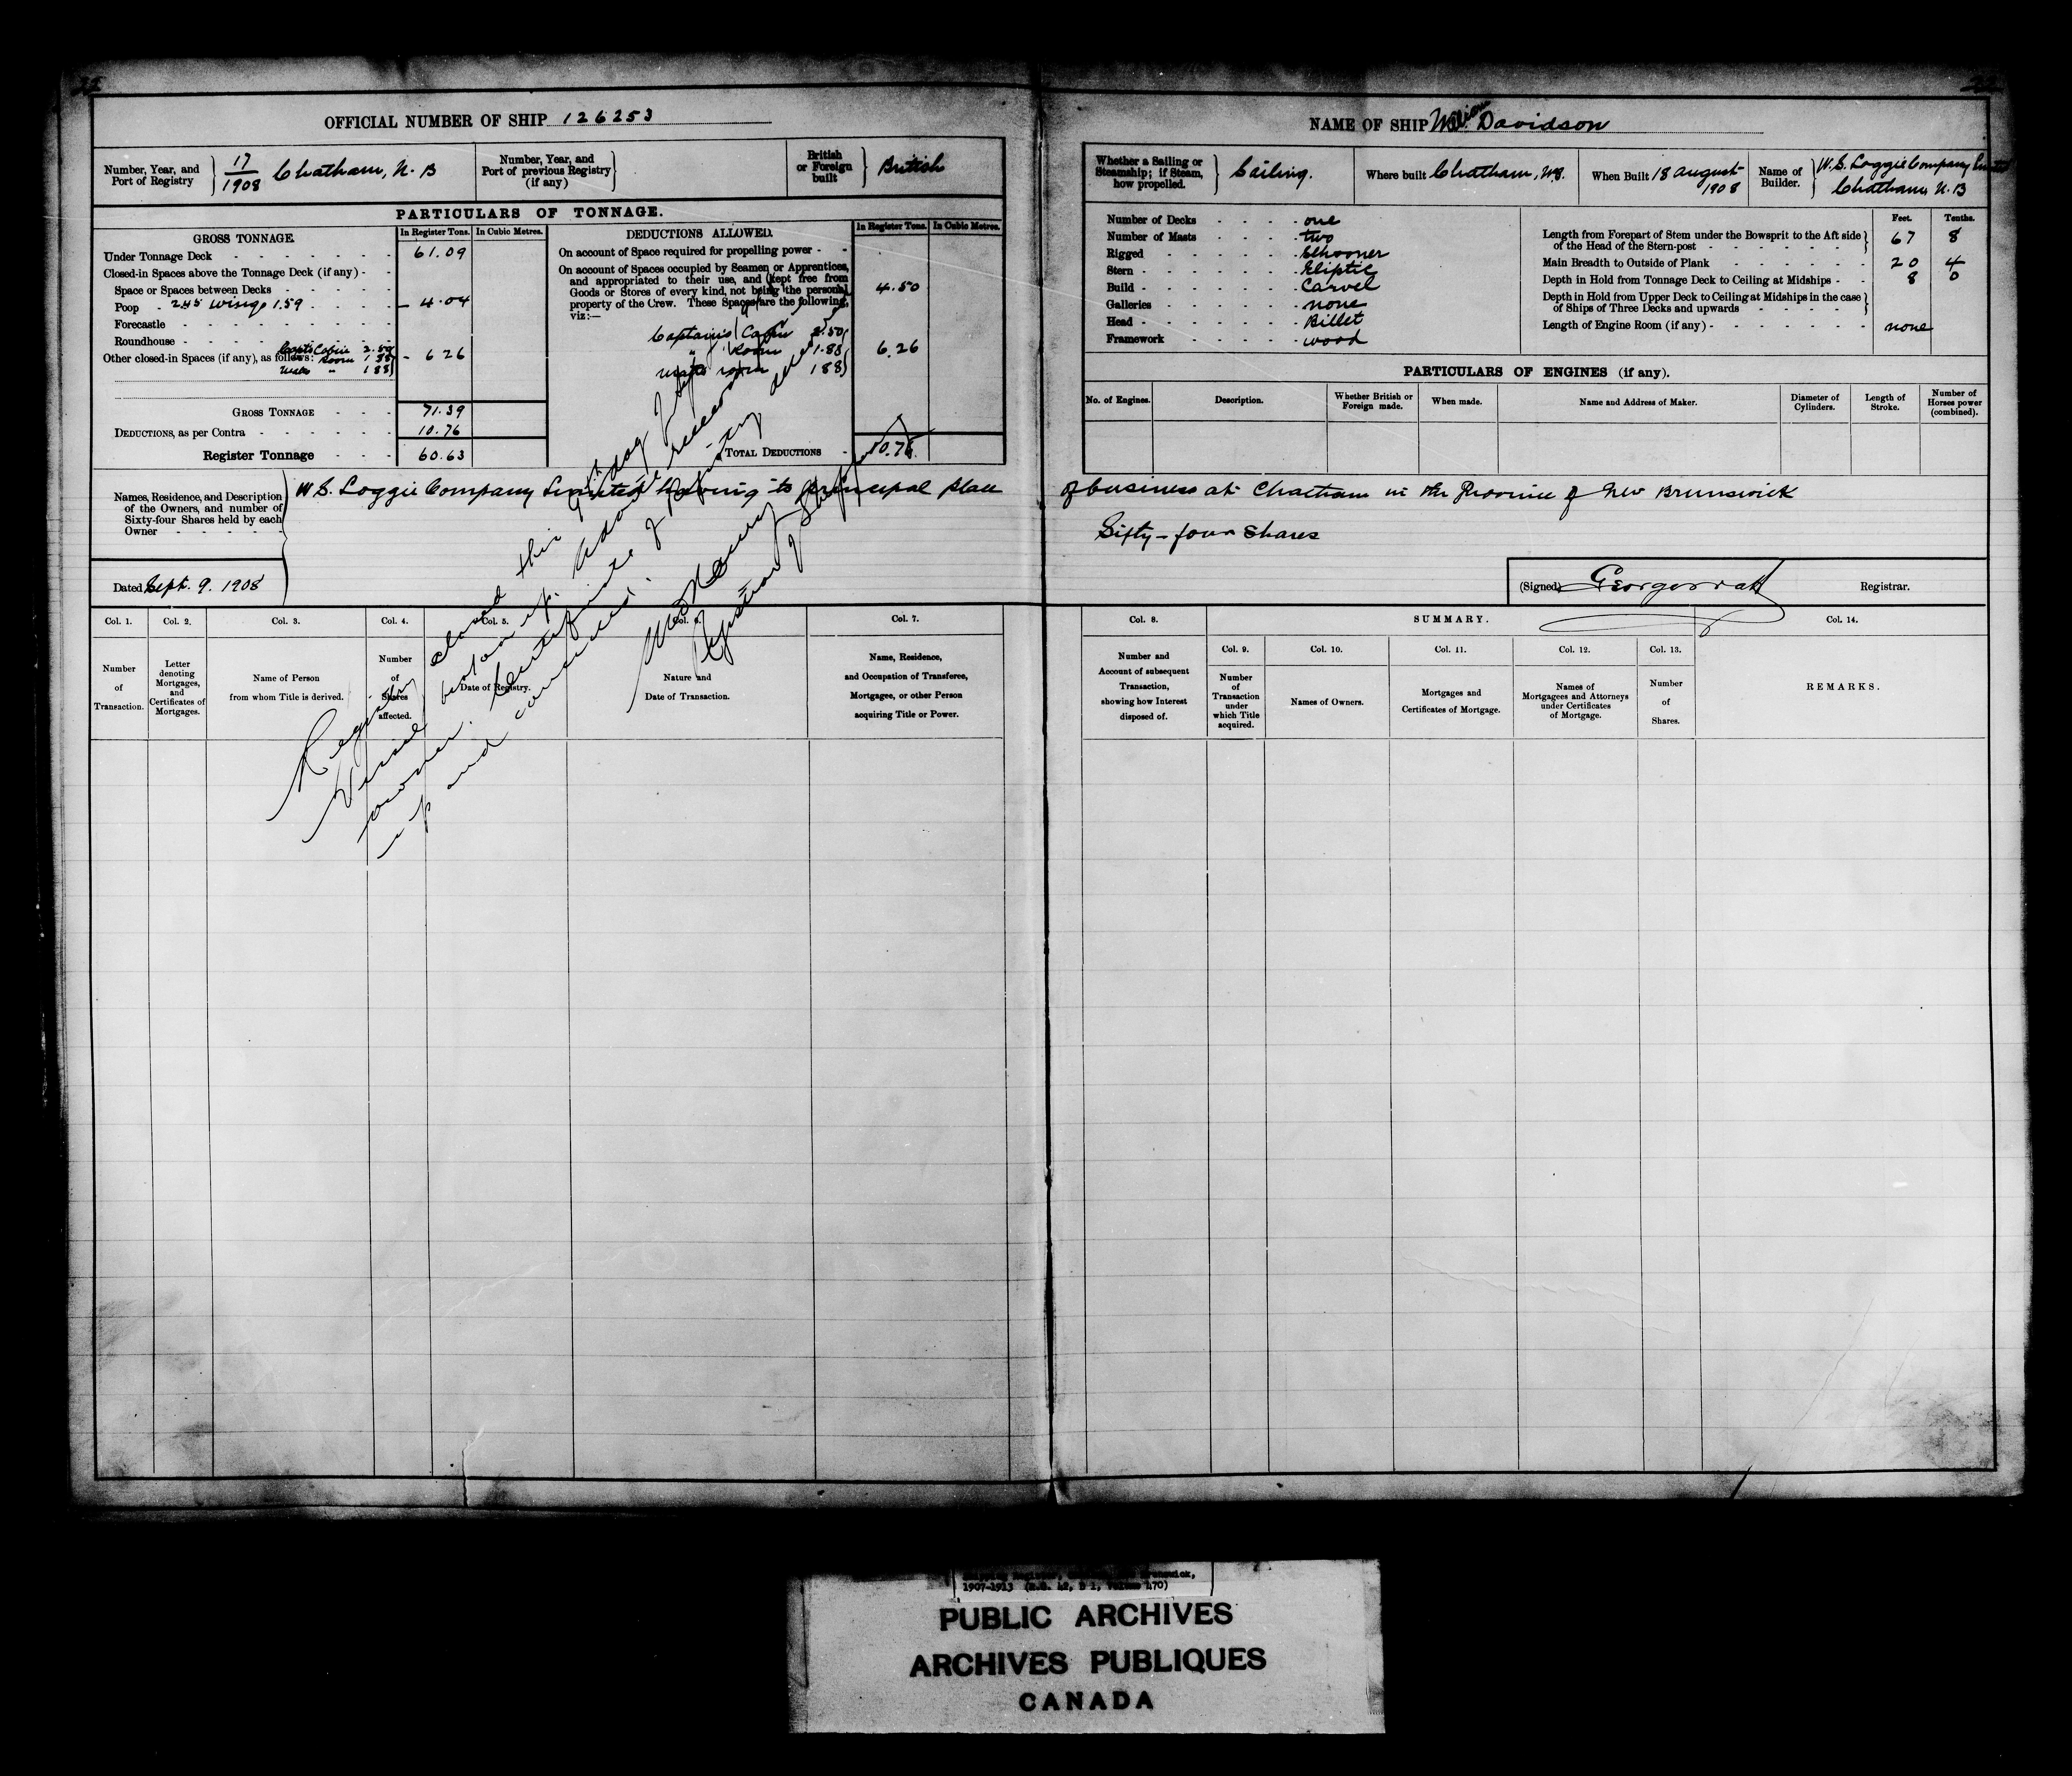 22
OFFICIAL NUMBER OF SHIP 126253
Number, Year, and Port of Registry
17/1908 Chatham, N. B
Number, Year, and Port of previous Registry (if any)
British or Foreign built
British
PARTICULARS OF TONNAGE.
GROSS TONNAGE.
In Register Tons.
In Cubic Metres.
Under Tonnage Deck 61.09
Closed-in Spaces above the Tonnage Deck (if any)
Space or Spaces between Decks
Poop 2.45 Wings 1.59 4.04
Forecastle
Roundhouse
Other closed-in Spaces (if any), as follows: Capts Cabin 2.50
Room 1.88
Mates " 1.88
6.26
GROSS TONNAGE 71.39
DEDUCTIONS, as per Contra 10.76
Register Tonnage 60.63
DEDUCTIONS ALLOWED.
In Register Tons.
In Cubic Metres.
On account of Space required for propelling power
On account of Spaces occupied by Seamen or Apprentices,
and appropriated to their use, and (kept free from
Goods or Stores of every kind, not being the personal
property of the Crew. These Spaces are the following,
viz:—
4.50
Captains Cabin 2.50
" Room 1.88
Mates room 1.88
6.26
TOTAL DEDUCTIONS 10.76
Names, Residence, and Description
of the Owners, and number of
Sixty-four Shares held by each
Owner
W. S. Loggie Company Limited having its principal place
Dated Sept. 9. 1908
Registry closed this day
Vessel broken up. Advice received
owner. Certificate of Registry
up and cancelled.
Registrar of Shipping
Col. 1.
Col. 2.
Col. 3.
Col. 4.
Col. 5.
Col. 6.
Col. 7.
Number of Transaction.
Letter denoting Mortgages, and Certificates of Mortgages.
Name of Person from whom Title is derived.
Number of Shares affected.
Date of Registry.
Nature and Date of Transaction.
Name, Residence, and Occupation of Transferee, Mortgagee, or other Person acquiring Title or Power.
NAME OF SHIP William Davidson
Whether a Sailing or Steamship; if Steam, how propelled.
Sailing.
Where built Chatham, N.B.
When Built 18 August 1908
Name of Builder.
W. S. Loggie Company Limited
Chatham, N. B
Number of Decks one
Number of Masts two
Rigged Schooner
Stern Eliptic
Build Carvel
Galleries none
Head Billet
Framework wood
Feet.
Tenths.
Length from Forepart of Stem under the Bowsprit to the Aft side
of the Head of the Stern-post 67 8
Main Breadth to Outside of Plank 20 4
Depth in Hold from Tonnage Deck to Ceiling at Midships 8 0
Depth in Hold from Upper Deck to Ceiling at Midships in the case
of Ships of Three Decks and upwards
Length of Engine Room (if any) none
PARTICULARS OF ENGINES (if any).
No. of Engines.
Description.
Whether British or Foreign made.
When made.
Name and Address of Maker.
Diameter of Cylinders.
Length of Stroke.
Number of Horses power (combined).
of business at Chatham in the Province of New Brunswick
Sixty-four Shares
(Signed) George Watt Registrar.
Col. 8.
SUMMARY.
Col. 14.
Col. 9.
Col. 10.
Col. 11.
Col. 12.
Col. 13.
Number and Account of subsequent Transaction, showing how Interest disposed of.
Number of Transaction under which Title acquired.
Names of Owners.
Mortgages and Certificates of Mortgage.
Names of Mortgagees and Attorneys under Certificates of Mortgage.
Number of Shares.
REMARKS.
1907-1913 (R.G. 42, B 1, Volume 470)
PUBLIC ARCHIVES
ARCHIVES PUBLIQUES
CANADA